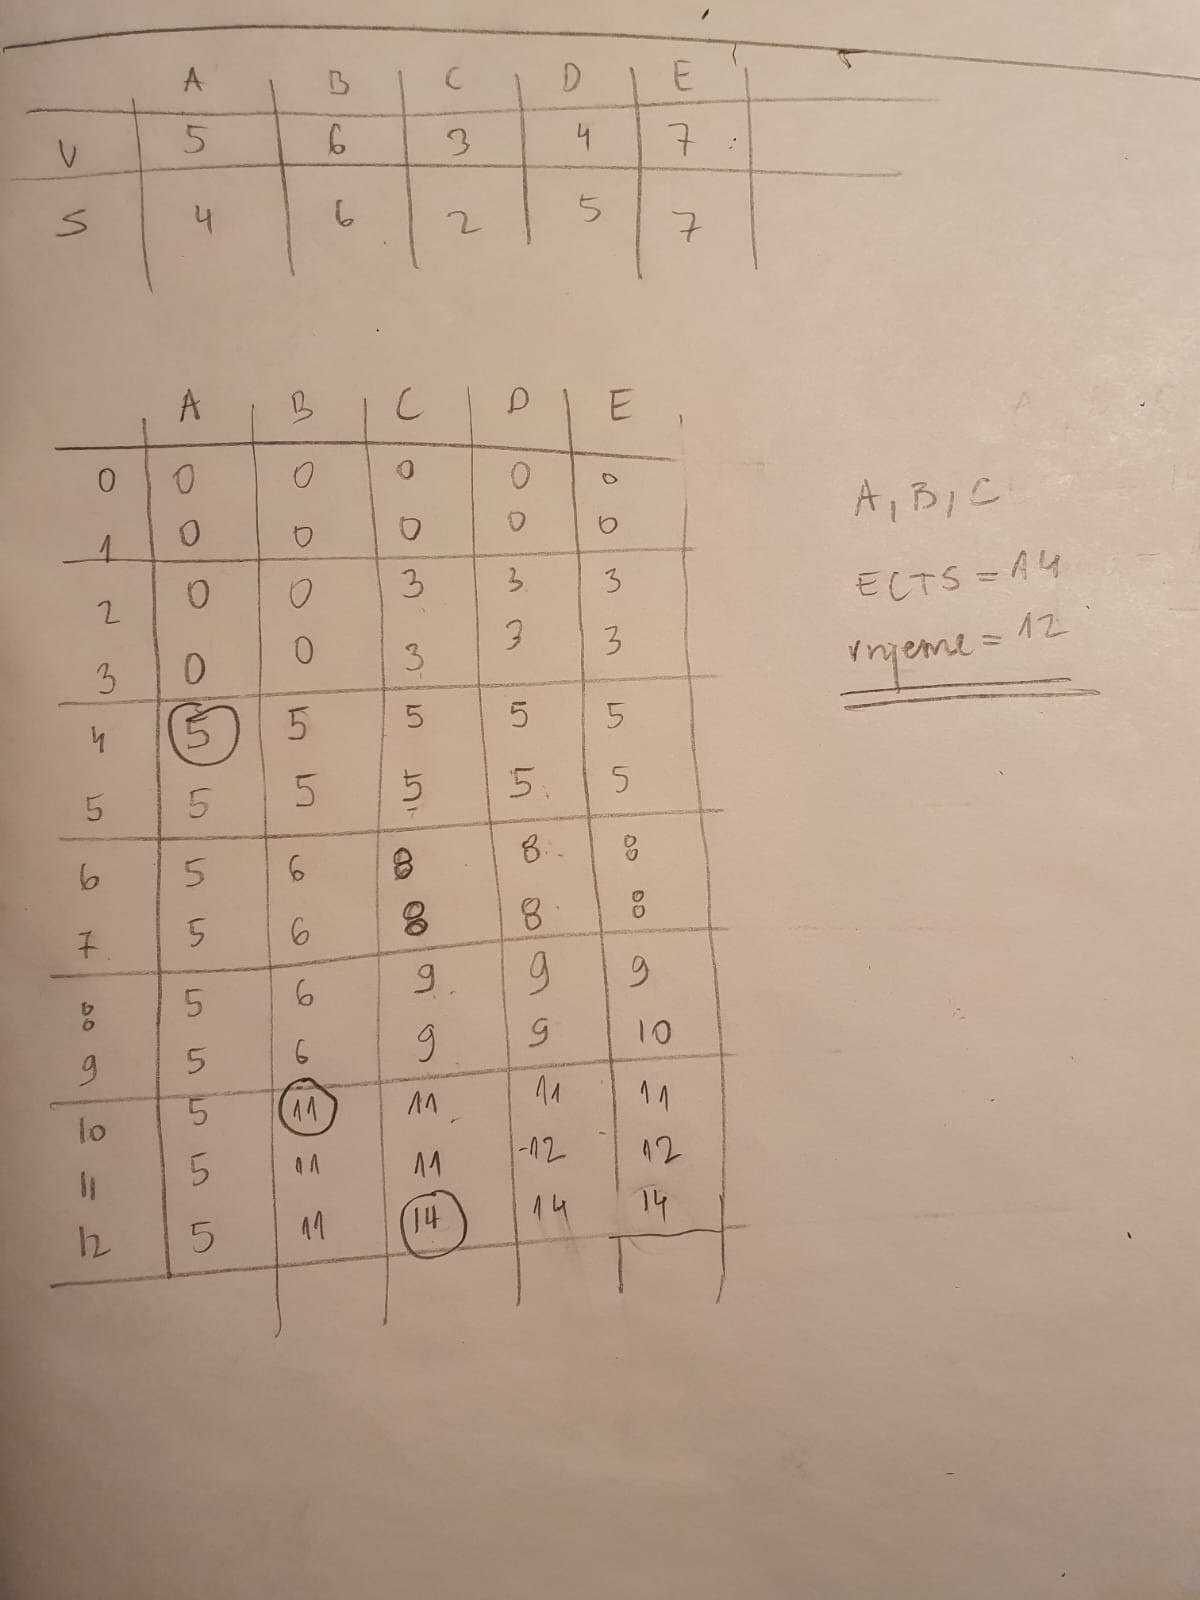 A B C D E
V 5 6 3 4 7
S 4 6 2 5 7
A B C D E
0 0 0 0 0 0
1 0 0 0 0 0
2 0 0 3 3 3
3 0 0 3 3 3
4 5 5 5 5 5
5 5 5 5 5 5
6 5 6 8 8 8
7 5 6 8 8 8
8 5 6 9 9 9
9 5 6 9 9 10
10 5 11 11 11 11
11 5 11 11 12 12
12 5 11 14 14 14
A, B, C
ECTS = 14
vrijeme = 12